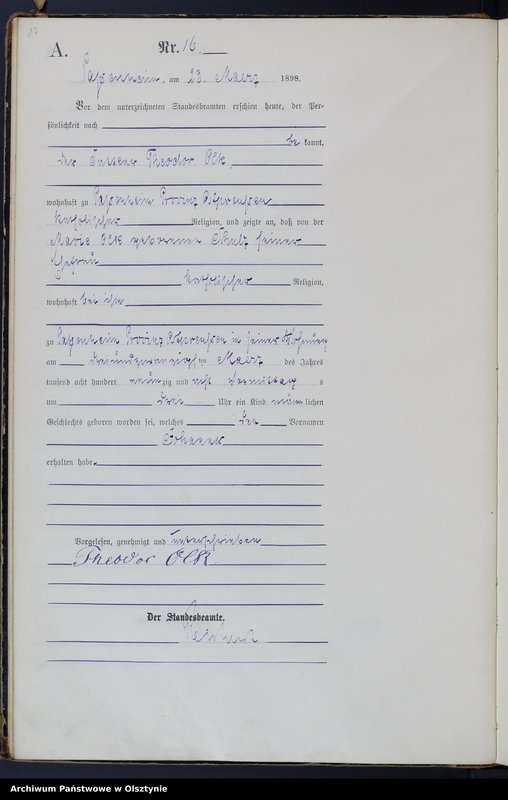 17
A.
Nr. 16.
am 23. Maerz 1898.
Vor dem unterzeichneten Standesbeamten erschien heute, der Per=
sönlichkeit nach
be kannt,
der Theodor Olk,
wohnhaft zu Provinz Ostpreußen
katholischer Religion, und zeigte an, daß von der
Marie Olk geborenen Schulz seiner
Ehefrau
katholischer Religion,
wohnhaft bei ihm
zu Provinz Ostpreußen in seiner Wohnung
am dreiundzwanzigsten Maerz des Jahres
tausend acht hundert neunzig und acht Vormittag s
um drei Uhr ein Kind männlichen
Geschlechts geboren worden sei, welches den Vornamen
Johannes
erhalten habe.
Vorgelesen, genehmigt und unterschrieben
Theodor Olk
Der Standesbeamte.
Archiwum Państwowe w Olsztynie